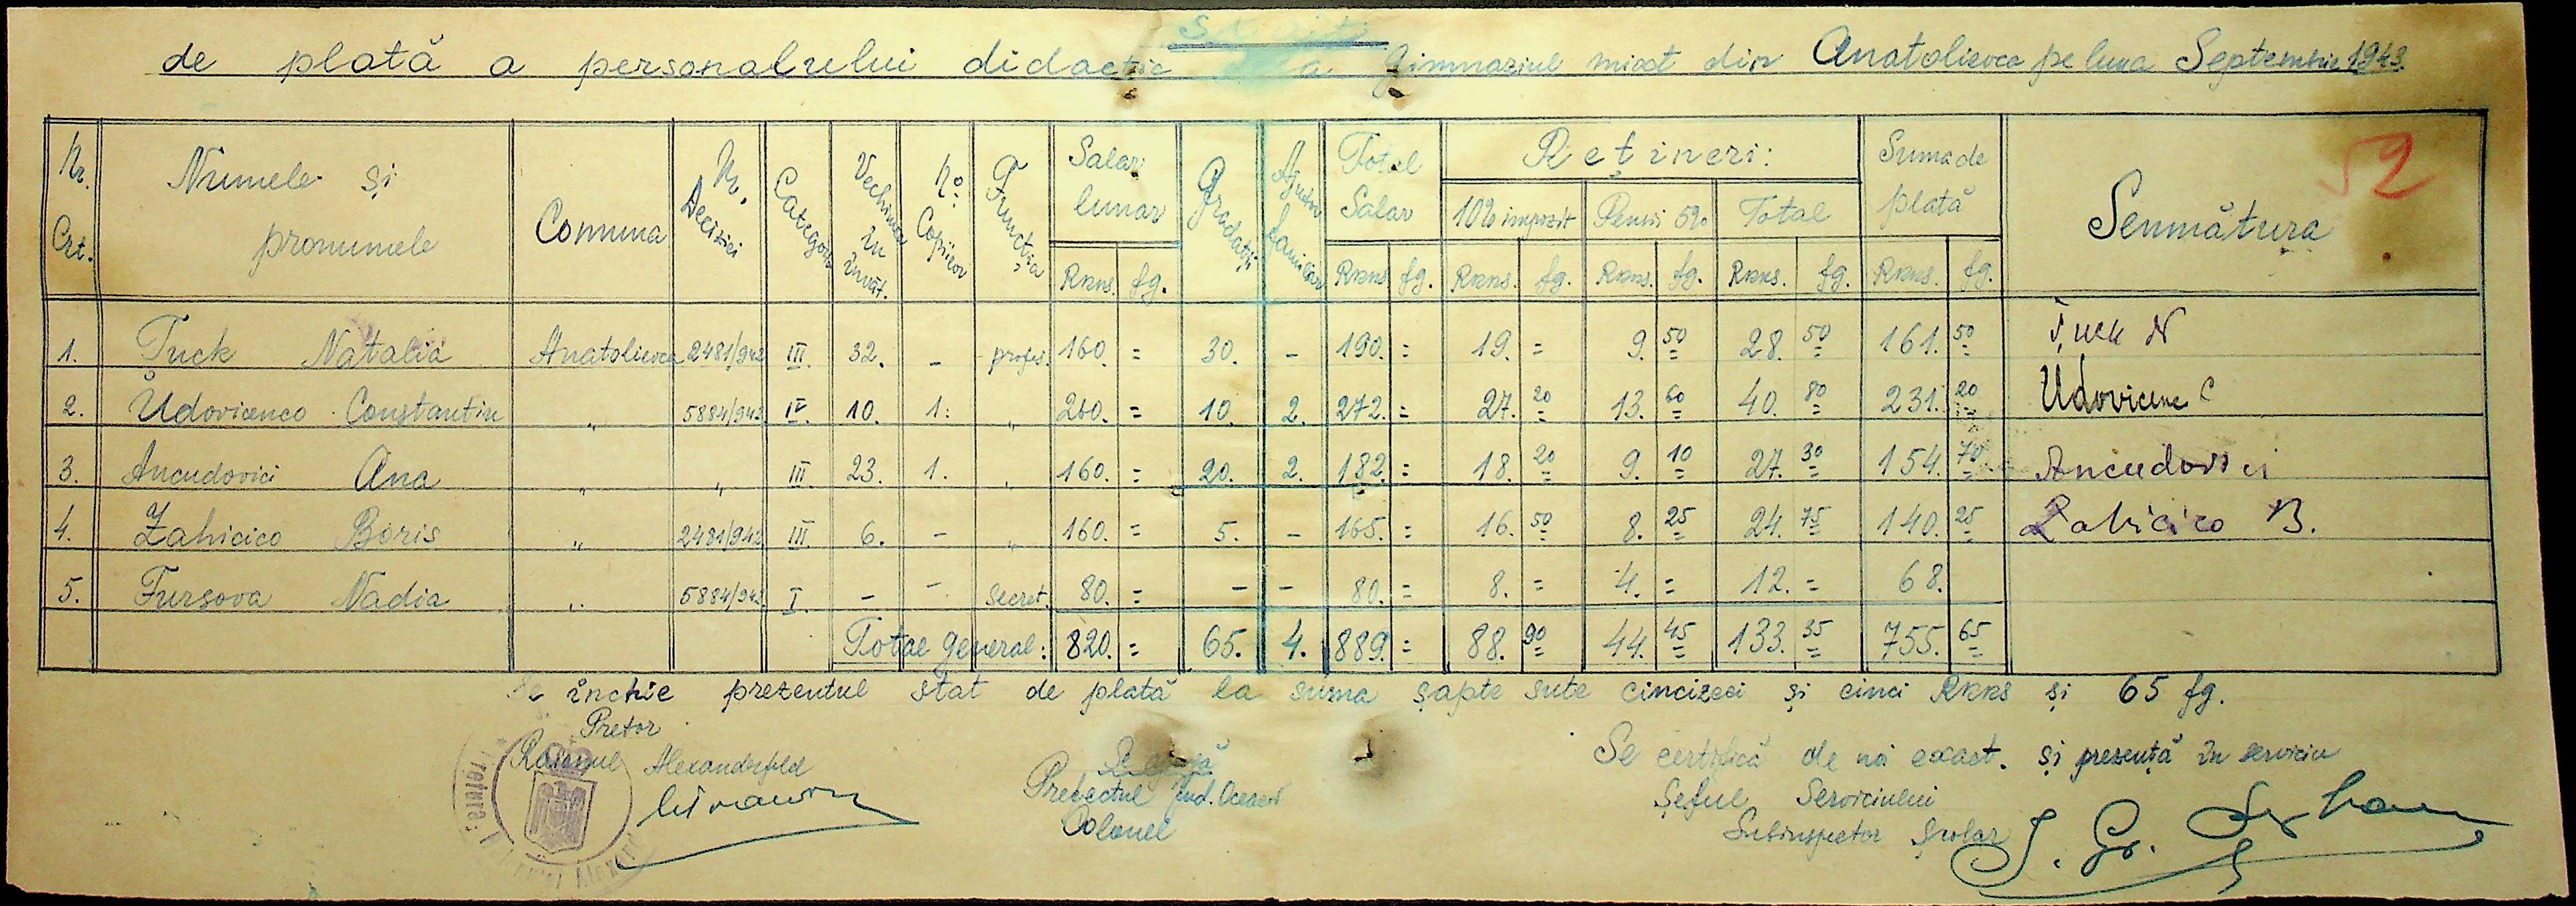 de plată a personalului didactic a Gimnaziul mixt din Anatolievca pe luna Septembrie 1943
52
Nr. Crt. Numele și pronumele Comuna Nr. Deciziei Categoria Vechimea în învăț. No. Copiilor Funcția Salar lunar Gradații Ajutor familiar Total Salar Rețineri: Suma de plată Semnătura
10% impozit Pensii 5% Total
Rkks. fg. Rkks fg. Rkks. fg. Rkks. fg. Rkks. fg. Rkks. fg.
1. Țuck Natalia Anatolievca 2481/942 III. 32. - profes. 160. = 30. - 190. = 19. = 9. 50 28. 50 161. 50 Țuck N
2. Udovicenco Constantin " 5884/943 IV. 10. 1. " 260. = 10. 2. 272. = 27. 20 13. 60 40. 80 231. 20 Udovicenc C
3. Ancudovici Ana " " III. 23. 1. " 160. = 20. 2. 182. = 18. 20 9. 10 27. 30 154. 70 Ancudovici
4. Zahicico Boris " 2481/942 III. 6. - " 160. = 5. - 165. = 16. 50 8. 25 24. 75 140. 25 Zahicico B.
5. Fursova Nadia " 5884/943 I. - - Secret. 80. = - - 80. = 8. = 4. = 12. = 68.
Total general: 820. = 65. 4. 889. = 88. 90 44. 45 133. 35 755. 65
Se închie prezentul stat de plată la suma șapte sute cincizeci și cinci Rkks și 65 fg.
Pretor
Raionul Alexanderfeld
Prefectul Jud. Oceacov
Colonel
Se certifică de noi exact. și prezență în serviciu
Șeful Serviciului
Subinspector Școlar